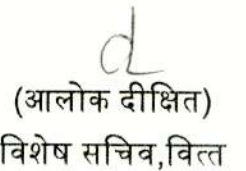 (आलोक दीक्षित)
विशेष सचिव,वित्त